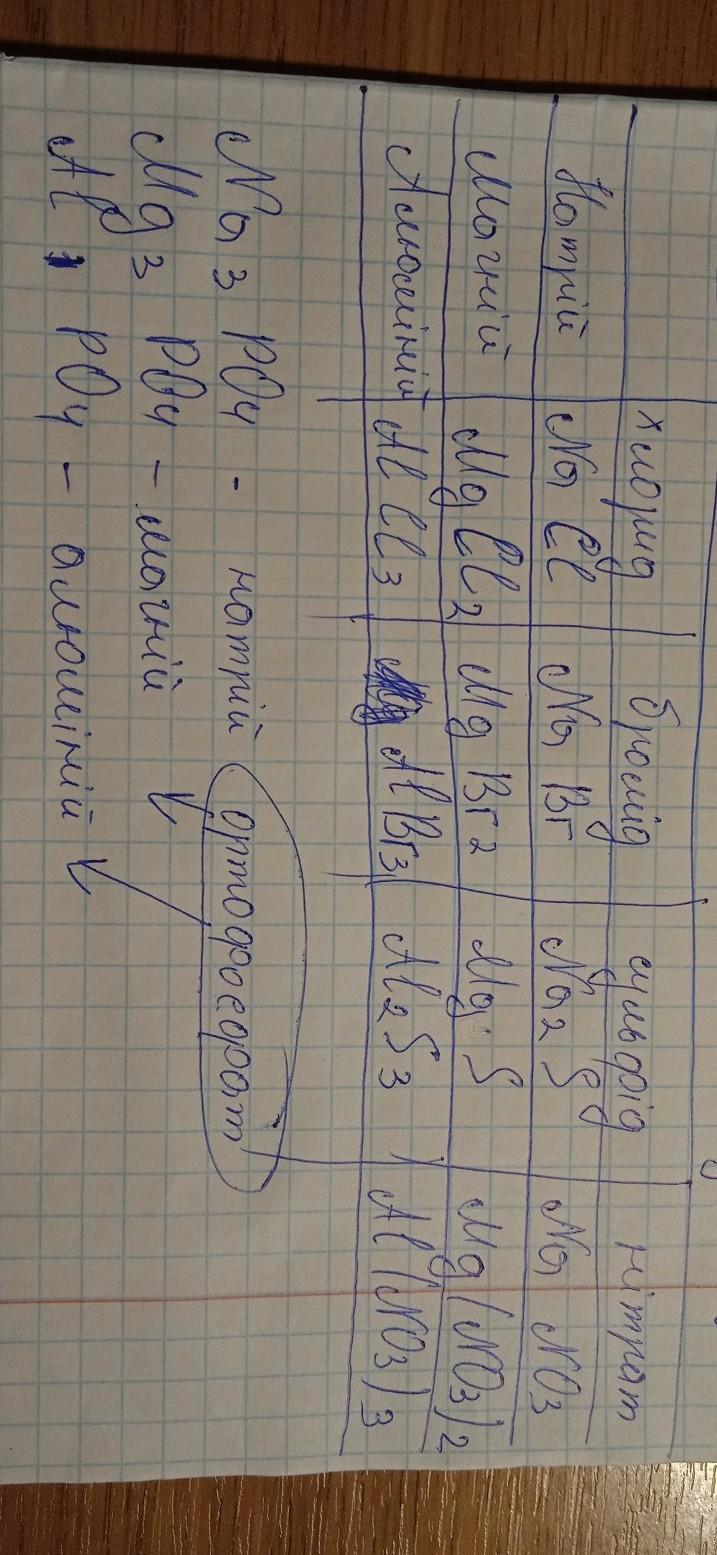 хлорид бромід сульфід нітрат
Натрій NaCl NaBr Na2S NaNO3
Магній MgCl2 MgBr2 MgS Mg(NO3)2
Алюміній AlCl3 AlBr3 Al2S3 Al(NO3)3
Na3 PO4 - натрій ортофосфат
Mg3 PO4 - магній
Al PO4 - алюміній